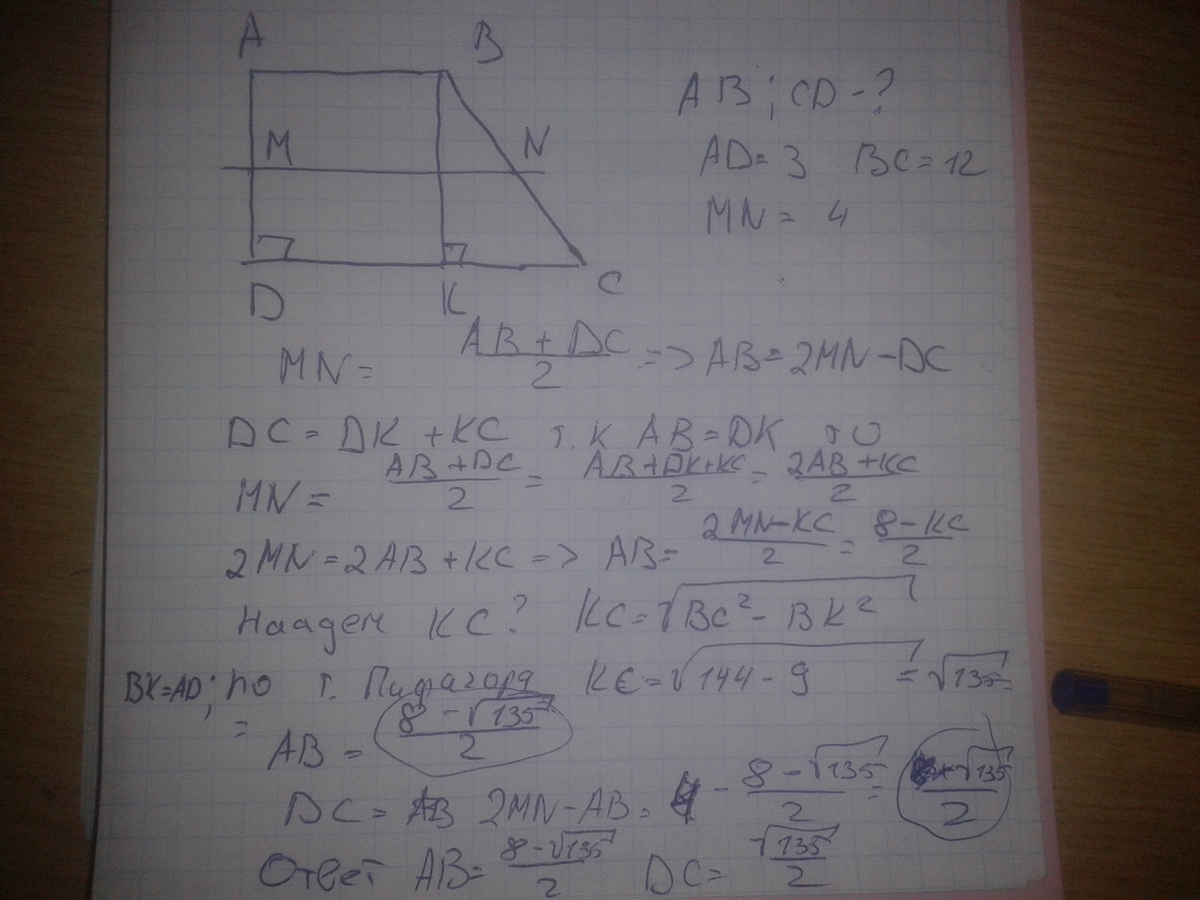 A B
AB; CD - ?
M N
AD = 3 BC = 12
MN = 4
D K C
MN = (AB + DC)/2 => AB = 2MN - DC
DC = DK + KC т. к AB = DK то
MN = (AB + DC)/2 = (AB + DK + KC)/2 = (2AB + KC)/2
2MN = 2AB + KC => AB = (2MN - KC)/2 = (8 - KC)/2
Наадем KC? KC = √(BC² - BK²)
BK = AD; по т. Пифагора KC = √(144 - 9) = √135
AB = (8 - √135)/2
DC = 2MN - AB = 4 - (8 - √135)/2 = √135/2
Ответ AB = (8 - √135)/2 DC = √135/2